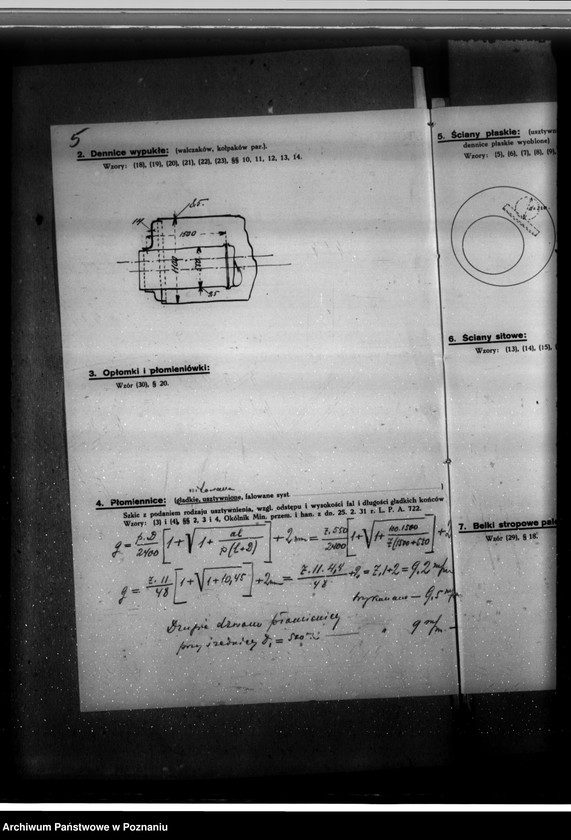 5
2. Dennice wypukłe: (walczaków, kołpaków par.).
Wzory: (18), (19), (20), (21), (22), (23), §§ 10, 11, 12, 13, 14.
14
1500
1100
3. Opłomki i płomieniówki:
Wzór (30), § 20.
nitowane
4. Płomiennice: (gładkie, usztywnione, falowane syst
Szkic z podaniem rodzaju usztywnienia, wzgl. odstępu i wysokości fal i długości gładkich końców
Wzory: (3) i (4), §§ 2, 3 i 4, Okólnik Min. przem. i han. z dn. 25. 2. 31 r. L. P. A. 722.
g = p.D/2400 [1+√1+ al/p(l+D)] + 2mm = 7.550/2400 [1+√1+ 1500/7(1500+550)] +2
g = 7.11/48 [1+√1+10,45] + 2mm = 7.11.4,4/48 + 2 = 7,1+2 = 9,2 m/m
wykonano – 9,5 m/m
Drugie dzwono płomienicy
przy średnicy d₁ = 500 m/m — " 9 m/m. –
5. Ściany płaskie: (usztywn
dennice płaskie wyoblone)
Wzory: (5), (6), (7), (8), (9),
6. Ściany sitowe:
Wzory: (13), (14), (15),
7. Belki stropowe
Wzór (29), § 18.
Archiwum Państwowe w Poznaniu